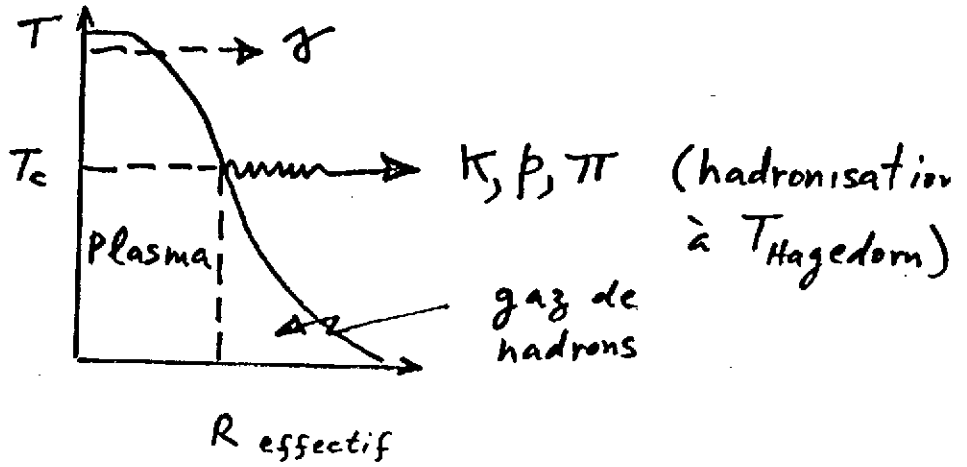 T
γ
Tc
K, p, π (hadronisation
à THagedorn)
Plasma
gaz de
hadrons
R effectif